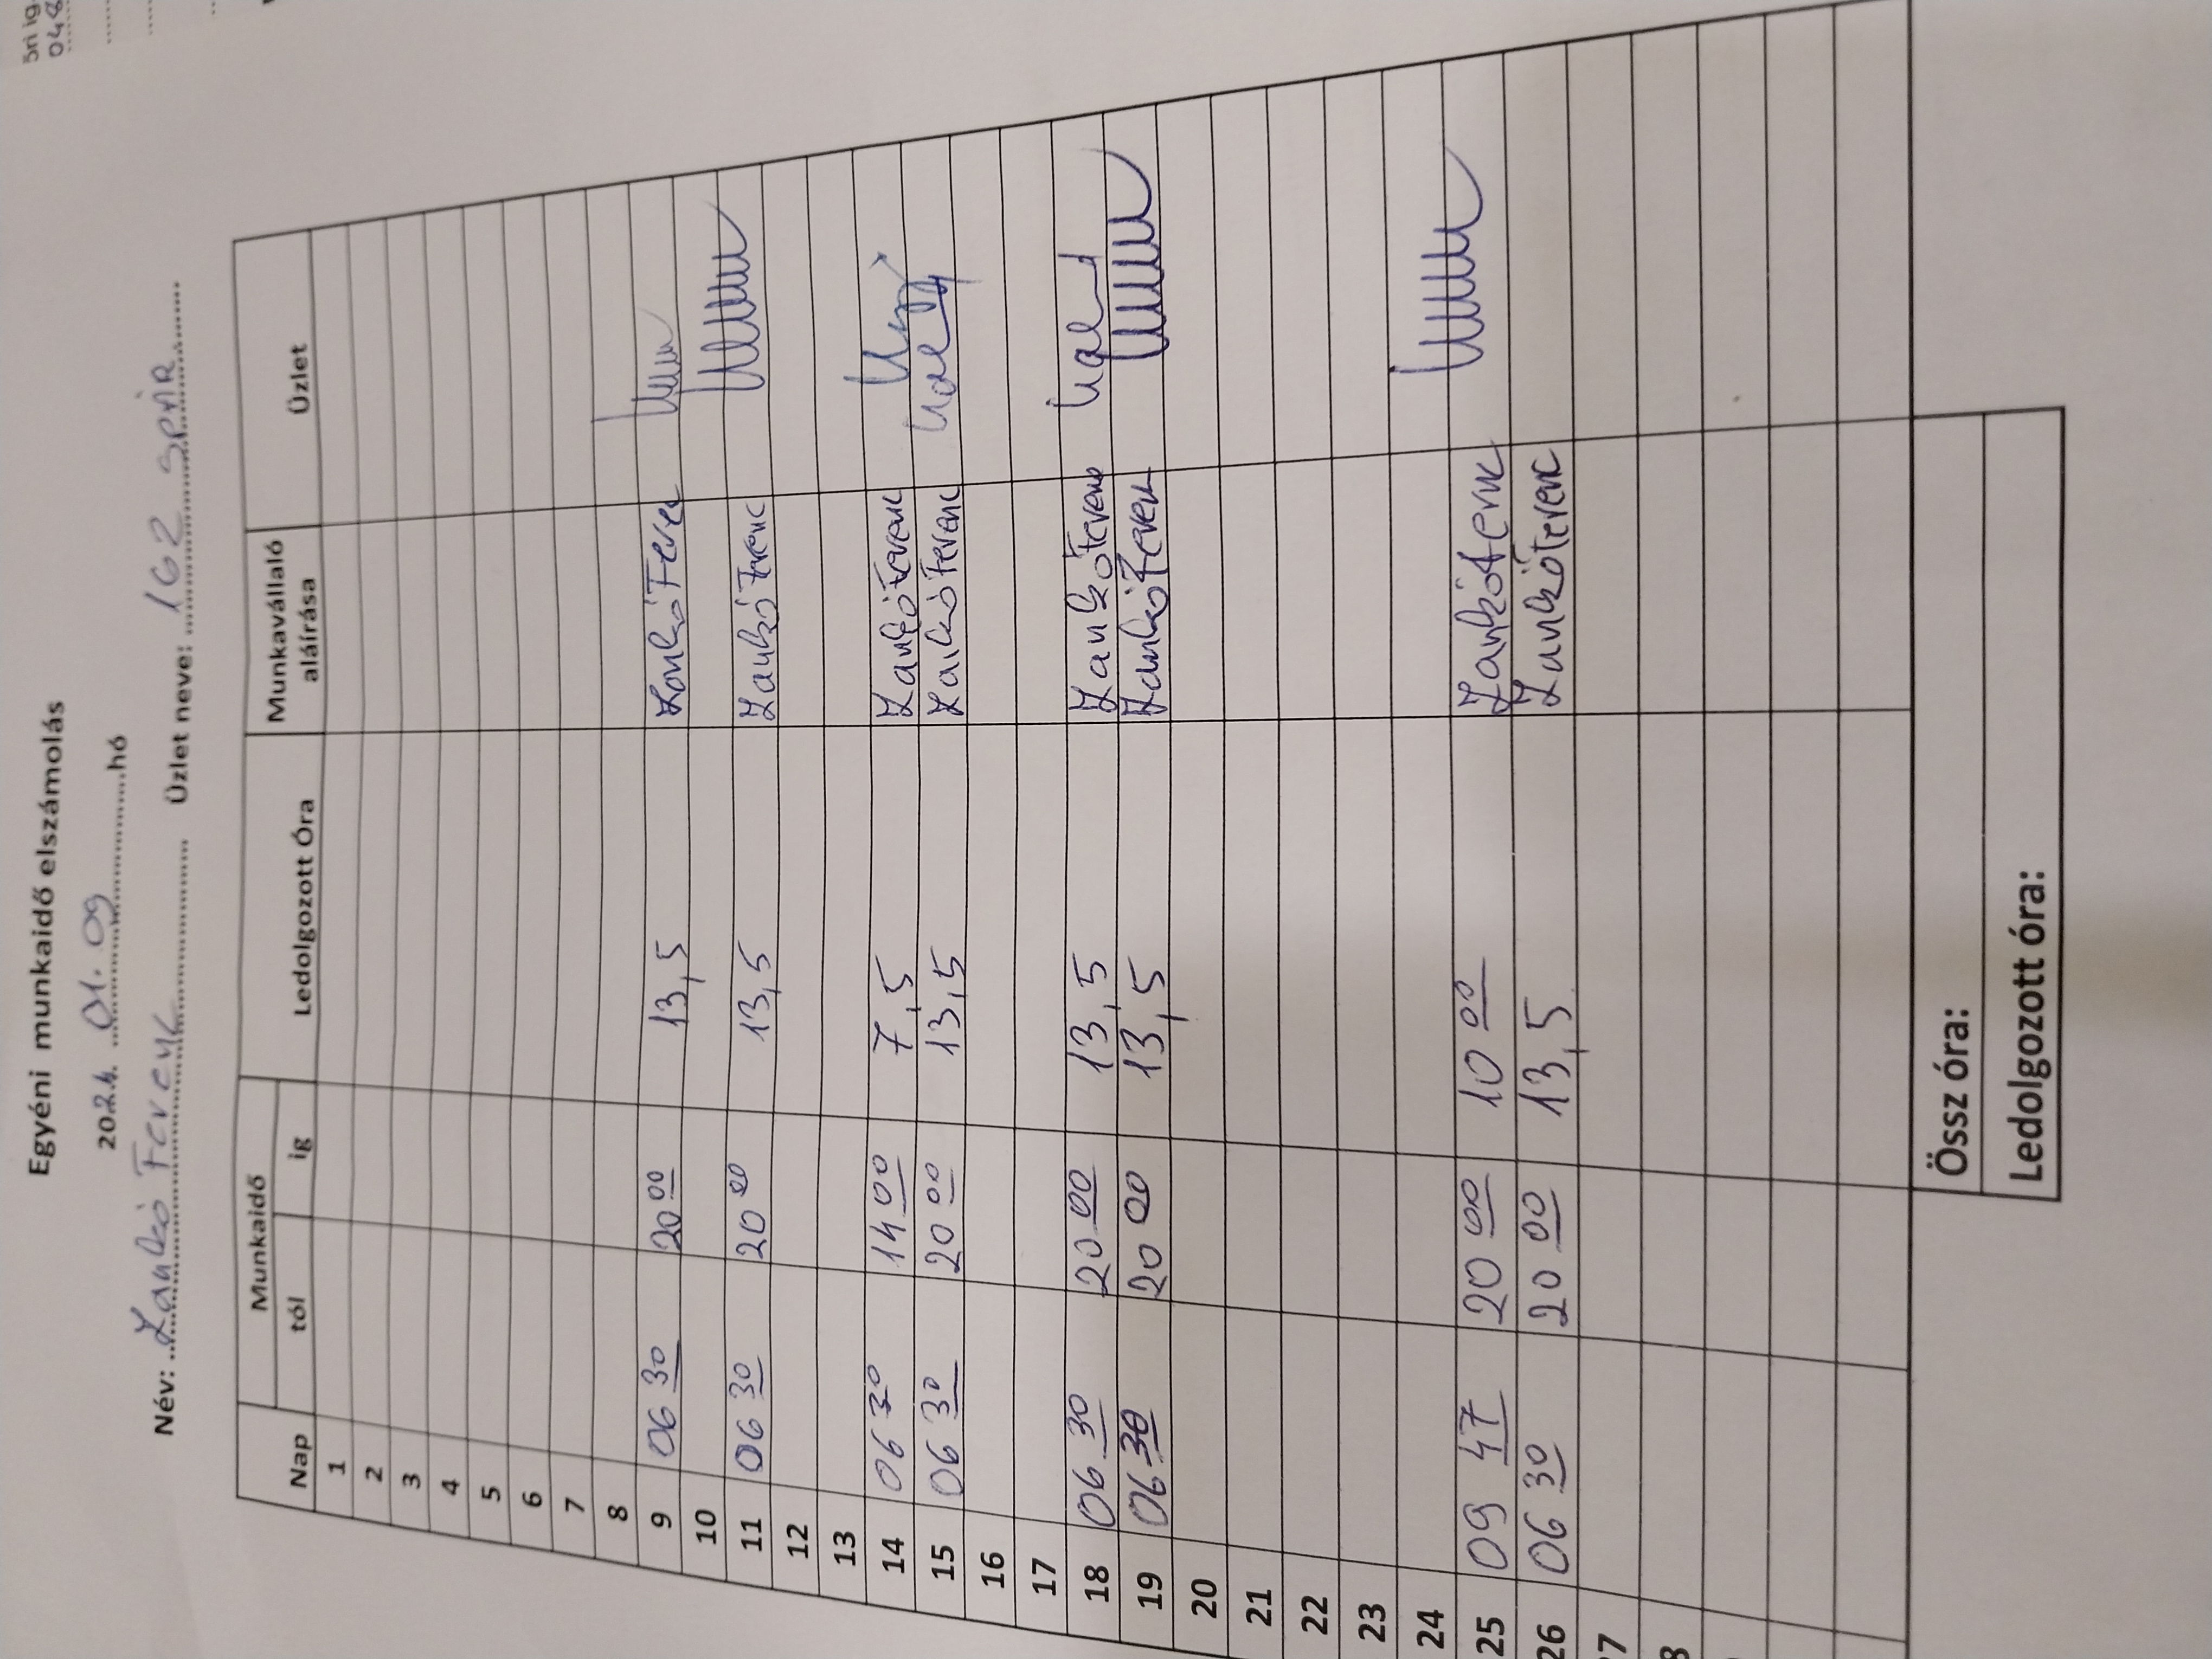 Egyéni munkaidő elszámolás
2024. 01.09 hó
Név: Zankó Ferenc Üzlet neve: 162 SPAR
Nap Munkaidő Ledolgozott Óra Munkavállaló aláírása Üzlet
tól ig
1
2
3
4
5
6
7
8
9 06 30 20 00 13,5 Zankó Ferenc
10
11 06 30 20 00 13,5 Zankó Ferenc
12
13
14 06 30 14 00 7,5 Zankó Ferenc
15 06 30 20 00 13,5 Zankó Ferenc
16
17
18 06 30 20 00 13,5 Zankó Ferenc
19 06 30 20 00 13,5 Zankó Ferenc
20
21
22
23
24
25 09 47 20 00 10 00 Zankó Ferenc
26 06 30 20 00 13,5 Zankó Ferenc
Össz óra:
Ledolgozott óra: